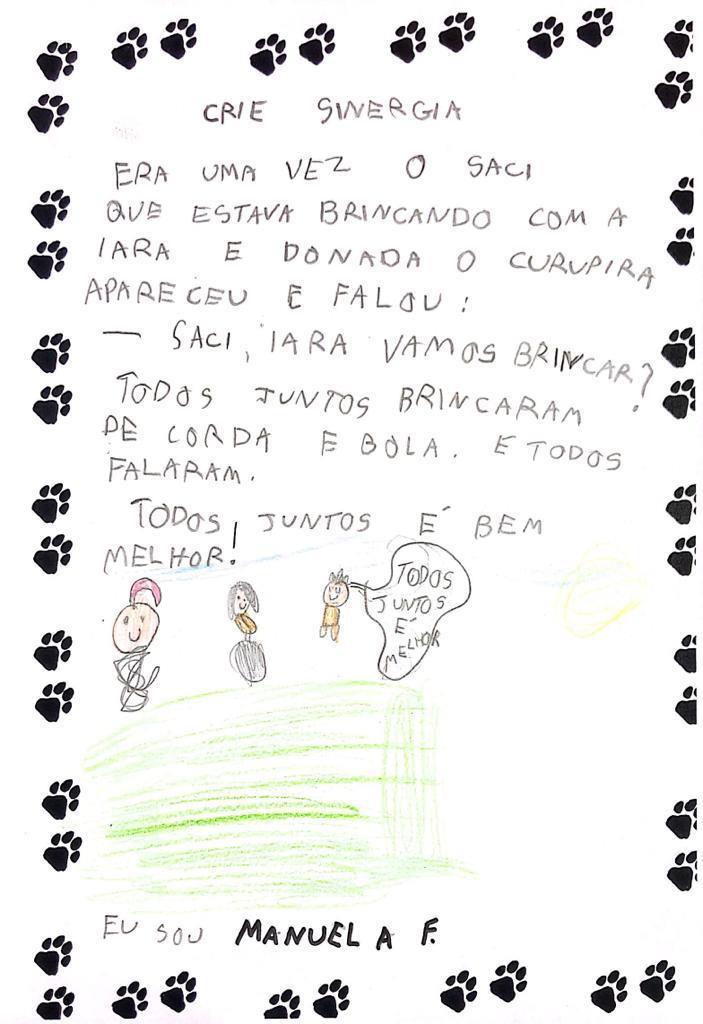 CRIE SINERGIA
ERA UMA VEZ O SACI
QUE ESTAVA BRINCANDO COM A
IARA E DONADA O CURUPIRA
APARECEU E FALOU:
— SACI, IARA VAMOS BRINCAR?
TODOS JUNTOS BRINCARAM
DE CORDA E BOLA. E TODOS
FALARAM.
TODOS JUNTOS É BEM
MELHOR!
TODOS
JUNTOS
É
MELHOR
EU SOU MANUELA F.